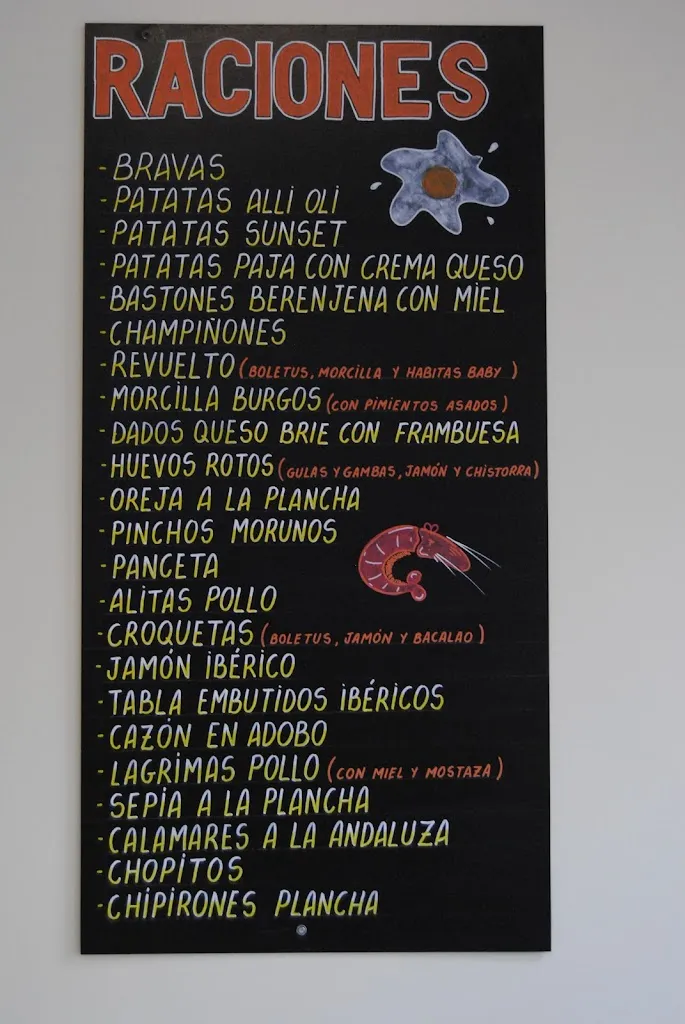 RACIONES
-BRAVAS
-PATATAS ALLI OLI
-PATATAS SUNSET
-PATATAS PAJA CON CREMA QUESO
-BASTONES BERENJENA CON MIEL
-CHAMPIÑONES
-REVUELTO (BOLETUS, MORCILLA Y HABITAS BABY )
-MORCILLA BURGOS (CON PIMIENTOS ASADOS )
-DADOS QUESO BRIE CON FRAMBUESA
-HUEVOS ROTOS (GULAS Y GAMBAS, JAMÓN Y CHISTORRA)
-OREJA A LA PLANCHA
-PINCHOS MORUNOS
-PANCETA
-ALITAS POLLO
-CROQUETAS (BOLETUS, JAMÓN Y BACALAO )
-JAMÓN IBÉRICO
-TABLA EMBUTIDOS IBÉRICOS
-CAZÓN EN ADOBO
-LAGRIMAS POLLO (CON MIEL Y MOSTAZA )
-SEPIA A LA PLANCHA
-CALAMARES A LA ANDALUZA
-CHOPITOS
-CHIPIRONES PLANCHA